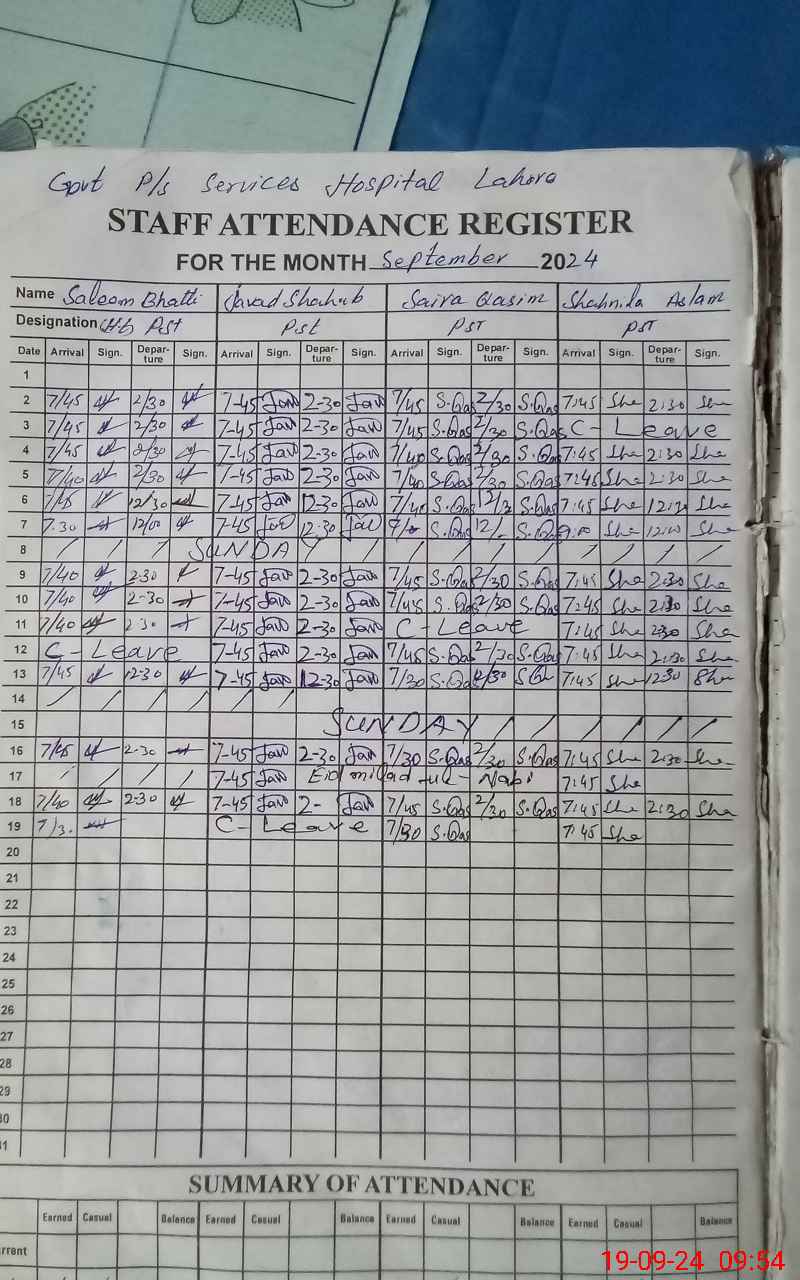 Govt P/s Services Hospital Lahore
STAFF ATTENDANCE REGISTER
FOR THE MONTH September 2024
Name Saleem Bhatti Javad Shahab Saira Qasim Shahnila Aslam
Designation Pst PST PST
Date Arrival Sign. Depar-ture Sign. Arrival Sign. Depar-ture Sign. Arrival Sign. Depar-ture Sign. Arrival Sign. Depar-ture Sign.
1
2 7/45 2/30 7-45 Jav 2-30 Jav 7/45 S.Qas 2/30 S.Qas 7:45 She 2:30 She
3 7/45 2/30 7-45 Jav 2-30 Jav 7/45 S.Qas 2/30 S.Qas C-Leave
4 7/45 2/30 7-45 Jav 2-30 Jav 7/40 S.Qas 2/30 S.Qas 7:45 She 2:30 She
5 7/40 2/30 7-45 Jav 2-30 Jav 7/40 S.Qas 2/30 S.Qas 7:45 She 2:30 She
6 7/45 12/30 7-45 Jav 12-30 Jav 7/40 S.Qas 12/3 S.Qas 7:45 She 12:30 She
7 7.30 12/00 7-45 Jav 12-30 Jav S.Qas 12/- S.Qas She She
8 / / / SUNDAY / / / / / / / / /
9 7/40 2-30 7-45 Jav 2-30 Jav 7/45 S.Qas 2/30 S.Qas 7:45 She 2:30 She
10 7/40 2-30 7-45 Jav 2-30 Jav 7/45 S.Qas 2/30 S.Qas 7:45 She 2:30 She
11 7/40 2-30 7-45 Jav 2-30 Jav C-Leave 7:45 She 2:30 She
12 C-Leave 7-45 Jav 2-30 Jav 7/45 S.Qas 2/30 S.Qas 7:45 She 2:30 She
13 7/45 12-30 7-45 Jav 12-30 Jav 7/30 S.Qas 7:45 She 12:30 She
14 / / / / / /
15 SUNDAY / / / / / /
16 7/45 2-30 7-45 Jav 2-30 Jav 7/30 S.Qas 2/30 S.Qas 7:45 She 2:30 She
17 / / / / 7-45 Jav Eid milad ul-Nabi 7:45 She
18 7/40 2-30 7-45 Jav 2- Jav 7/45 S.Qas 2/30 S.Qas 7:45 She 2:30 She
19 7/3. C-Leave 7/30 S.Qas 7:45 She
20
21
22
23
24
25
26
27
28
29
30
31
SUMMARY OF ATTENDANCE
Earned Casual Balance Earned Casual Balance Earned Casual Balance Earned Casual Balance
rrent
19-09-24 09:54